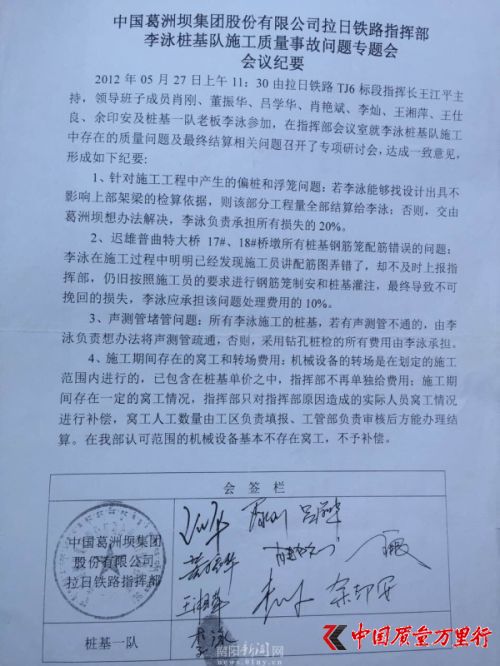 中国葛洲坝集团股份有限公司拉日铁路指挥部
李泳桩基队施工质量事故问题专题会
会议纪要
2012 年 05 月 27 日上午 11：30 由拉日铁路 TJ6 标段指挥长王江平主
持，领导班子成员肖刚、董振华、吕学华、肖艳斌、李灿、王湘萍、王仕
良、余印安及桩基一队老板李泳参加，在指挥部会议室就李泳桩基队施工
中存在的质量问题及最终结算相关问题召开了专项研讨会，达成一致意见，
形成如下纪要：
1、针对施工工程中产生的偏桩和浮笼问题：若李泳能够找设计出具不
影响上部架梁的检算依据，则该部分工程量全部结算给李泳；否则，交由
葛洲坝想办法解决，李泳负责承担所有损失的 20%。
2、迟雄普曲特大桥 17#、18#桥墩所有桩基钢筋笼配筋错误的问题：
李泳在施工过程中明明已经发现施工员讲配筋图弄错了，却不及时上报指
挥部，仍旧按照施工员的要求进行钢筋笼制安和桩基灌注，最终导致不可
挽回的损失，李泳应承担该问题处理费用的 10%。
3、声测管堵管问题：所有李泳施工的桩基，若有声测管不通的，由李
泳负责想办法将声测管疏通，否则，采用钻孔桩检的所有费用由李泳承担。
4、施工期间存在的窝工和转场费用：机械设备的转场是在划定的施工
范围内进行的，已包含在桩基单价之中，指挥部不再单独给费用；施工期
间存在一定的窝工情况，指挥部只对指挥部原因造成的实际人员窝工情况
进行补偿，窝工人工数量由工区负责填报、工管部负责审核后方能办理结
算。在我部认可范围的机械设备基本不存在窝工，不予补偿。
会 签 栏
中国葛洲坝集团
股份有限公司
拉日铁路指挥部
吕学华
董振华
王湘萍
余印安
桩基一队
李泳
南阳新闻网
www.01ny.cn
中国质量万里行